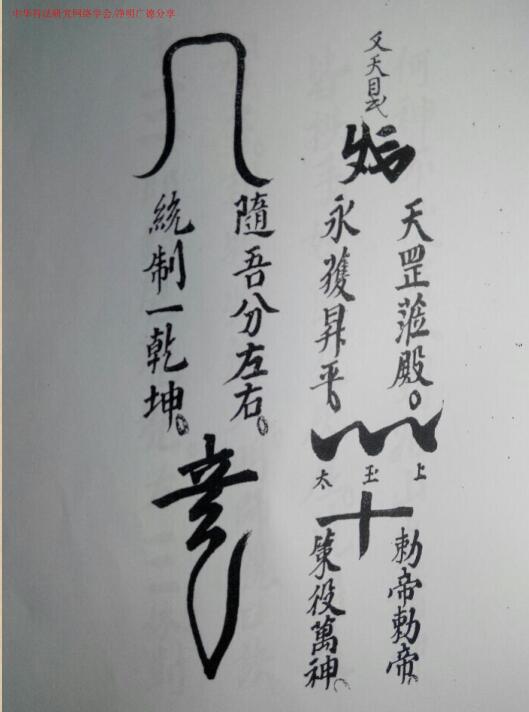 中华符法研究网络学会.净明广德分享
又天目
天罡蒞殿。
永獲昇平。
上
玉
太
勅帝勅帝。
策役萬神。
隨吾分左右。
統制一乾坤。